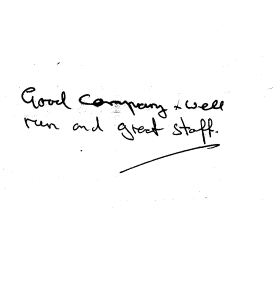 Good Company + well
run and great staff.